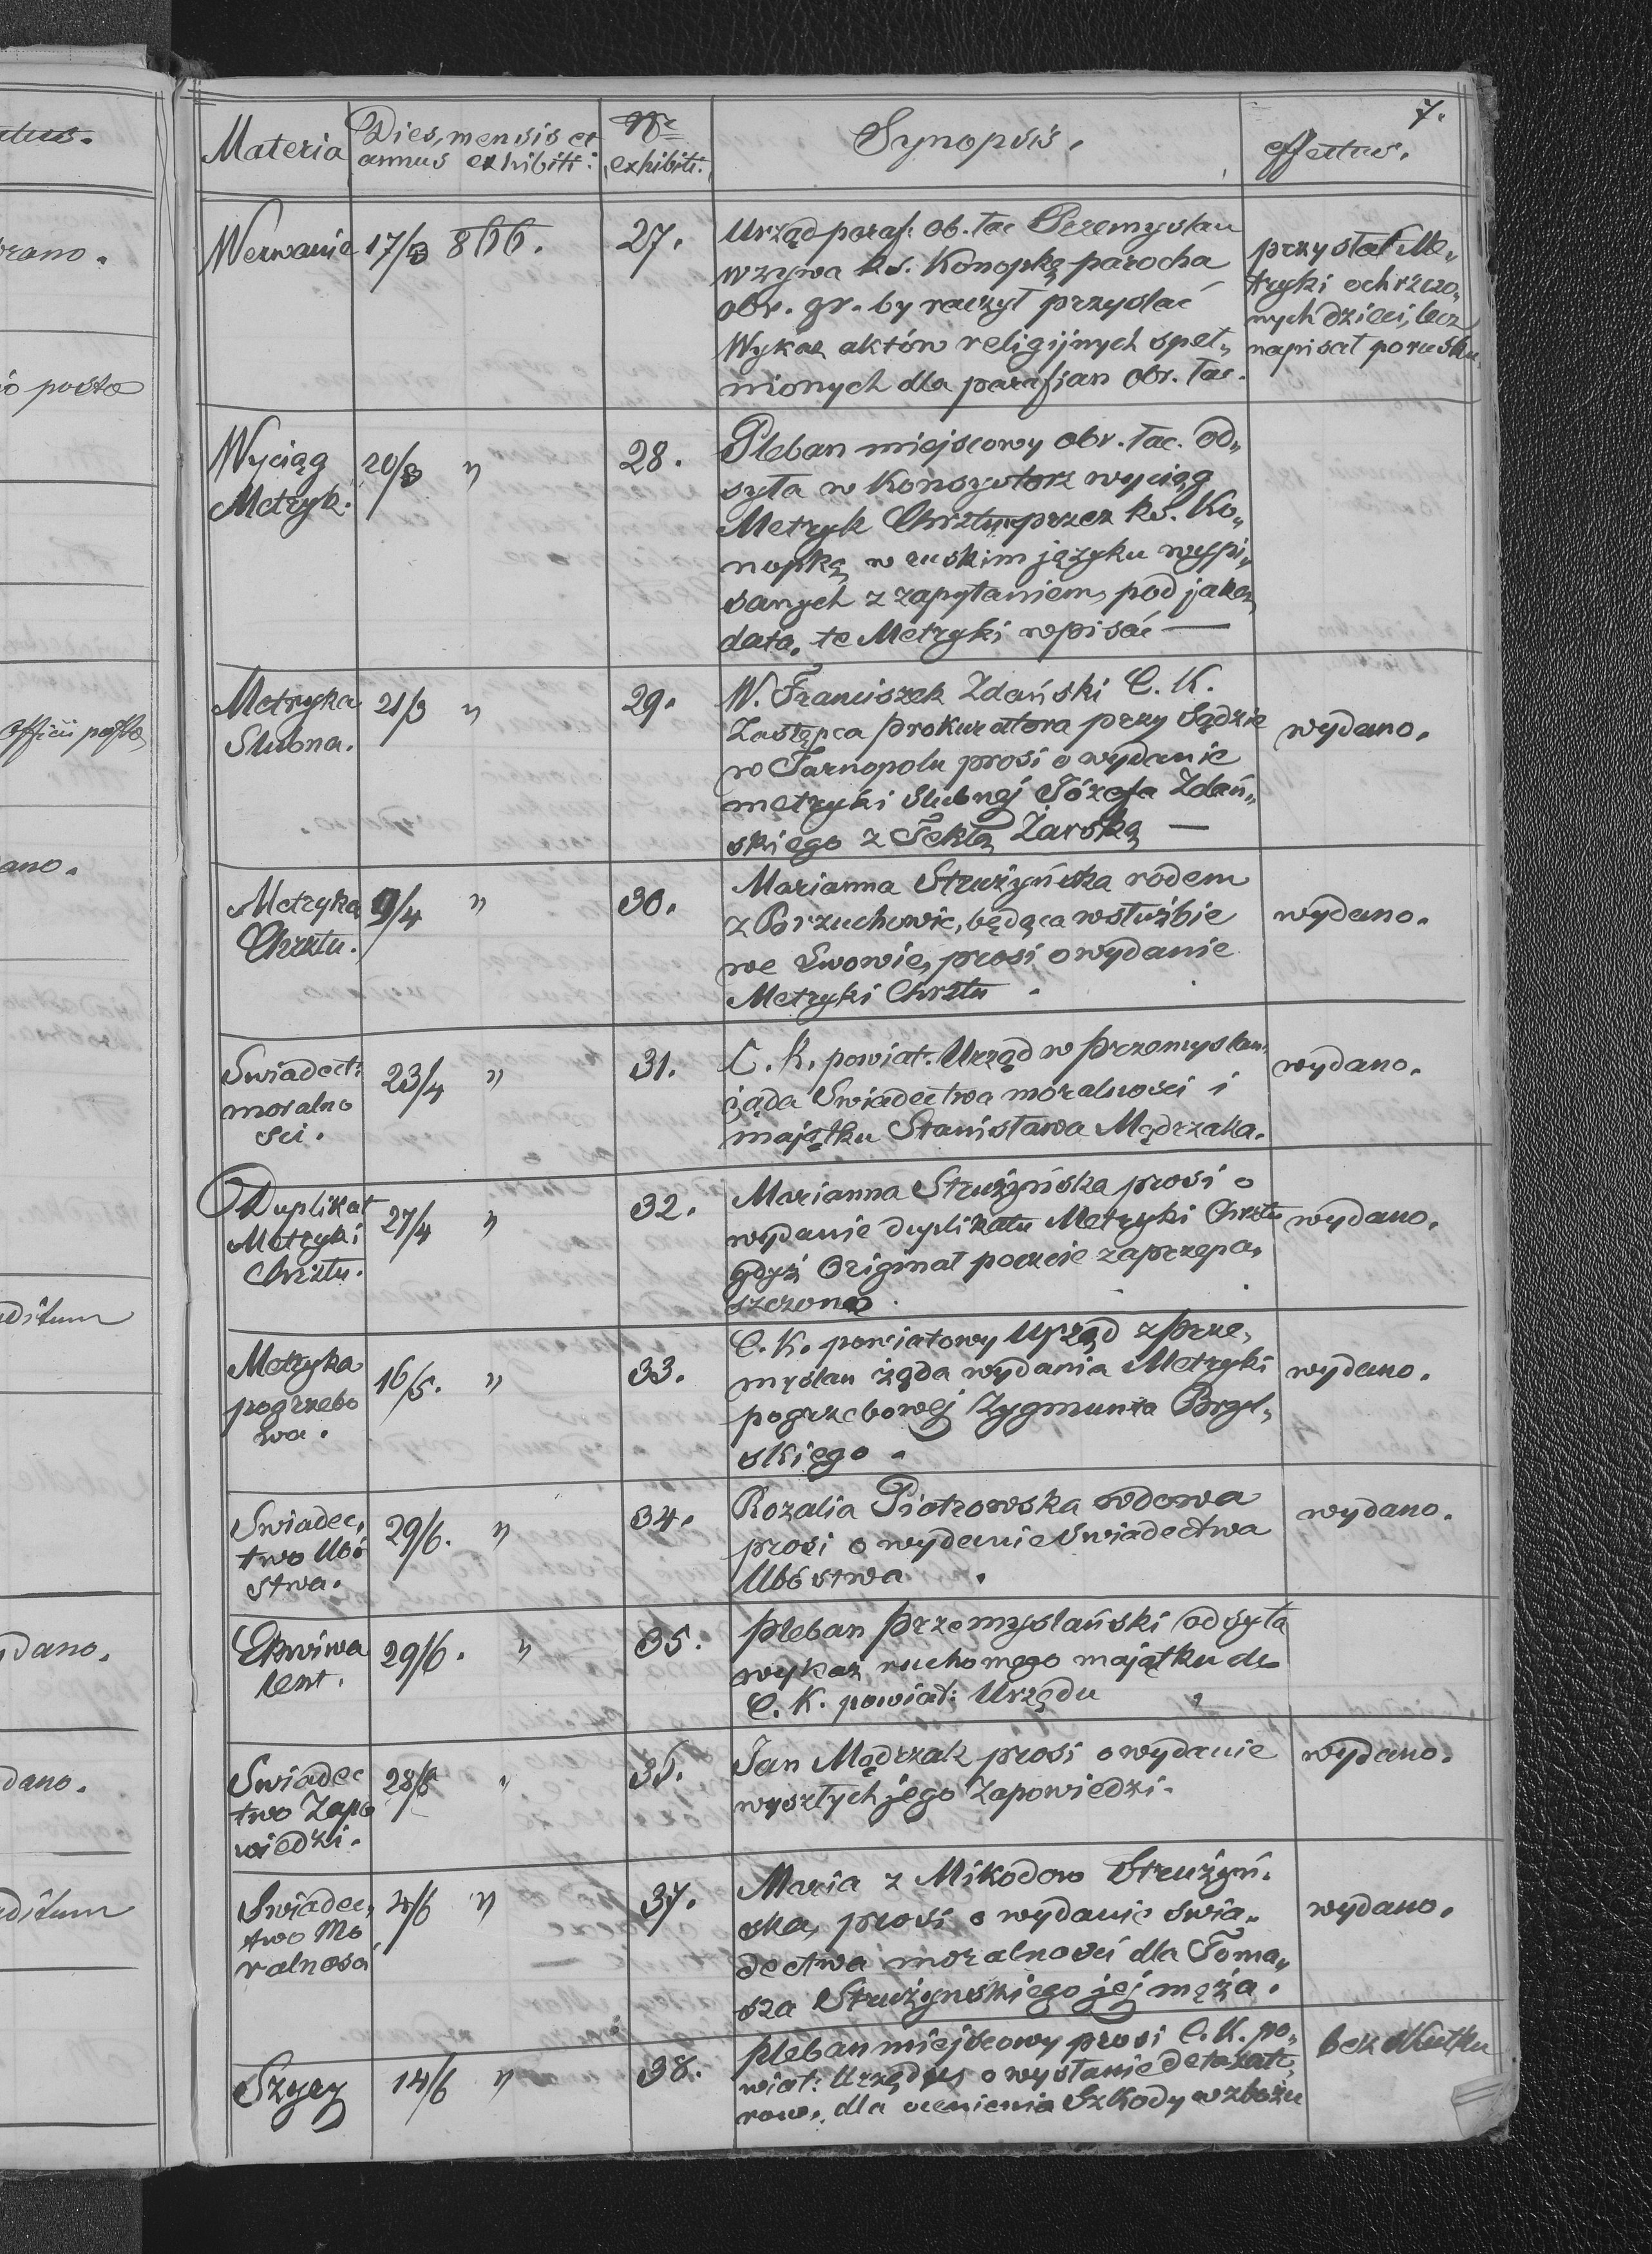 7.
Materia
Dies, mensis et
annus exhibiti:
Nr
exhibiti.
Synopsis.
effectus.
Wezwanie 17/3 866. 27.
Urząd paraf. ob. łac Przemyslan
wzywa ks. Konopką parocha
obr. gr. by raczył przysłać
Wykaz aktów religijnych speł„
nionych dla parafjan obr. łac.
przysłał Me„
tryki ochrzczo„
nych dzieci, lecz
napisał po rusku
Wyciąg
Metryk.
20/3 " 28.
Pleban miejscowy obr. łac. od„
syła w Konsystorz wyciąg
Metryk Chrztu przez ks. Ko„
nopką w ruskim języku wypi„
sanych z zapytaniem, pod jaką
datą te Metryki wpisać —
Metryka
Slubna.
21/3 " 29.
W. Franciszek Zdański C. K.
Zastępca prokuratora przy Sądzie
w Tarnopolu prosi o wydanie
metryki slubnej Józefa Zdań„
skiego z Teklą Żarską —
wydano.
Metryka
Chrztu.
9/4 " 30.
Marianna Strużyńska rodem
z Brzuchowic, będąca w służbie
we Lwowie, prosi o wydanie
Metryki Chrztu.
wydano.
Swiadect:
moralno
sci.
23/4 " 31.
C. K. powiat. Urząd w Przemyslan:
żąda Swiadectwa moralnosci i
majątku Stanisława Mądrzaka.
wydano.
Duplikat
Metryki
Chrztu.
27/4 " 32.
Marianna Strużyńska prosi o
wydanie duplikatu Metryki Chrztu
gdyż Originał poczcie zaprzepa„
szczono.
wydano.
Metryka
pogrzebo
wa.
16/5. " 33.
C. K. powiatowy Urząd z Prze„
myslan żąda wydania Metryki
pogrzebowej Zygmunta Bryl„
skiego.
wydano.
Swiadec„
two Ubó
stwa.
29/6. " 34.
Rozalia Piotrowska wdowa
prosi o wydanie Swiadectwa
Ubóstwa.
wydano.
Ekwiwa
lent.
29/6. " 35.
Pleban Przemyslański odsyła
wykaz ruchomego majątku do
C. K. powiat: Urzędu
Swiadec
two Zapo
wiedzi.
28/6 " 36.
Jan Mądrzak prosi o wydanie
wyszłych jego Zapowiedzi.
wydano.
Swiadec„
two Mo
ralnosci
" 37.
Maria z Mikodow Strużyń„
ska, prosi o wydanie swia„
dectwa moralnosci dla Toma„
sza Strużynskiego jej męża.
wydano.
14/6 " 38.
Pleban miejscowy prosi C. K. po„
wiat: Urzędu o wysłanie detaxato„
row, dla ocenienia Szkody w zbożu
bez skutku